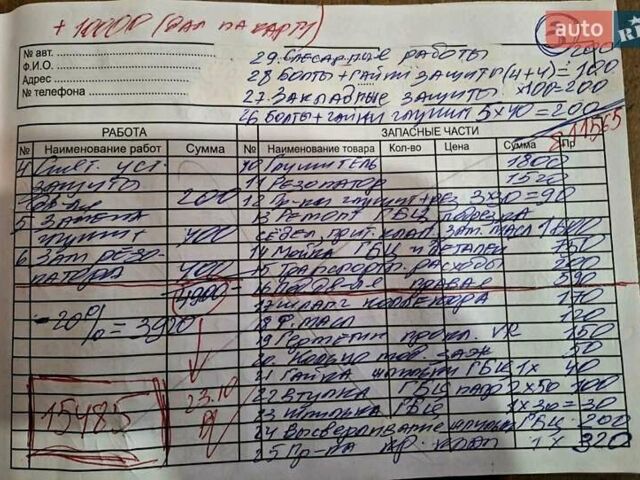 + 1000₽ (дал на карту)
auto
RI
№ авт.
Ф.И.О.
Адрес
№ телефона
29. Слесарные работы 200
28 Болты+гайки защиты (4+4) = 100
27. Закладные защиты *100=200
26 Болты+гайки глушит 5х40=200
11565
РАБОТА ЗАПАСНЫЕ ЧАСТИ
№ Наименование работ Сумма № Наименование товара Кол-во Цена Сумма Пр
4 Снят. уст. защиты 200
5 Замена глушит 400
6 Зам. резонатора 400
4900
-20% = 3920
23.10
15485
10 Глушитель 1800
11 Резонатор 1520
12 Пр-ки глушит+рез 3х30=90
13 Ремонт ГБЦ
14 Мойка ГБЦ и деталей 750
15 Транспорт. расходы 200
16 правая 590
17 Шланг коллектора 170
18 Ф. масл 120
19 Герметик прокл. VR 150
20 Кольцо 50
21 Гайка шпильки ГБЦ 1х 40
22 Втулка ГБЦ 2х50 100
23 Шпилька ГБЦ 1х30=30
24 Высверливание шпильки ГБЦ 200
25 Пр-ка кр. клап 1х 320